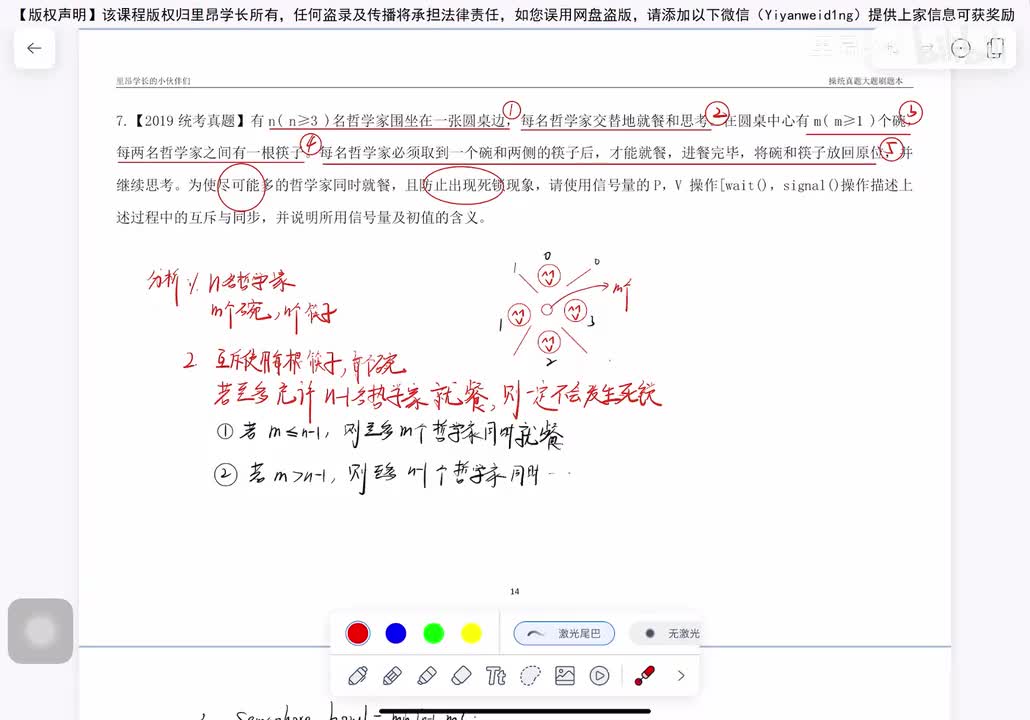 【版权声明】该课程版权归里昂学长所有，任何盗录及传播将承担法律责任，如您误用网盘盗版，请添加以下微信（Yiyanweid1ng）提供上家信息可获奖励
里昂学长的小伙伴们
操统真题大题刷题本
7.【2019 统考真题】有 n( n≥3 )名哲学家围坐在一张圆桌边，每名哲学家交替地就餐和思考。在圆桌中心有 m( m≥1 )个碗，
① ② ③
每两名哲学家之间有一根筷子。每名哲学家必须取到一个碗和两侧的筷子后，才能就餐，进餐完毕，将碗和筷子放回原位，并
④ ⑤
继续思考。为使尽可能多的哲学家同时就餐，且防止出现死锁现象，请使用信号量的 P，V 操作[wait()，signal()操作描述上
述过程中的互斥与同步，并说明所用信号量及初值的含义。
分析 1. n名哲学家
m个碗，n个筷子
0
1
0
m个
1
3
2
2. 互斥使用每根筷子，每个碗
若至多允许 n-1名哲学家就餐，则一定不会发生死锁
① 若 m≤n-1，则至多m个哲学家同时就餐
② 若 m>n-1，则至多 n-1个哲学家同时…
14
激光尾巴
无激光
Tt